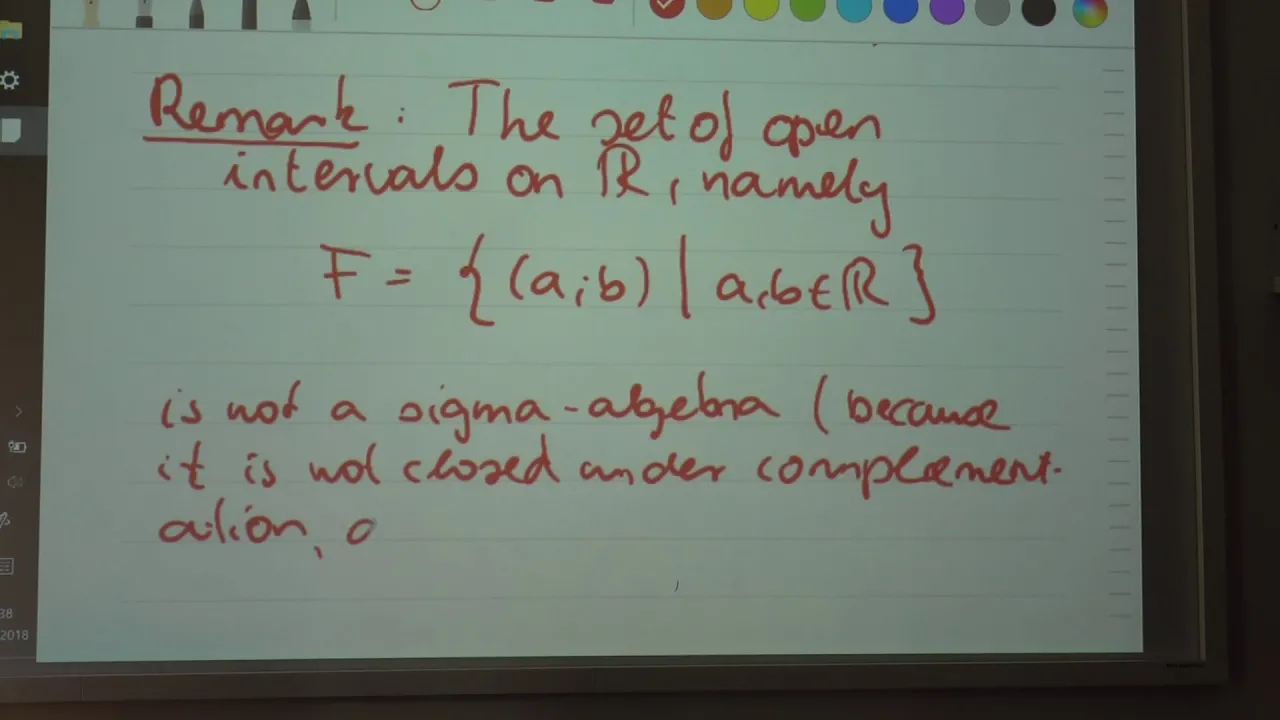 Remark: The set of open
intervals on ℝ, namely
F = { (a;b) | a,b∈ℝ }
is not a sigma-algebra (because
it is not closed under complement-
ation, o
38
2018